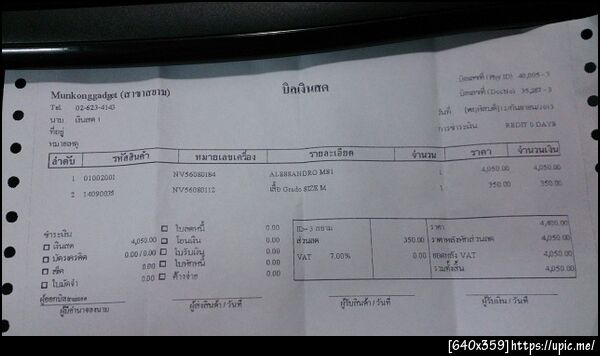 บิลเงินสด
Munkonggadget (สาขาสยาม)
Tel. 02-623-4143
นาม เงินสด 1
ที่อยู่
หมายเหตุ
บิลเลขที่ (Phy ID) 40,005 - 3
บิลเลขที่ (DocNo) 35,287 - 3
วันที่ [พฤหัสบดี] 12/กันยายน/2013
การชำระเงิน REDIT 0 DAYS
ลำดับ รหัสสินค้า หมายเลขเครื่อง รายละเอียด จำนวน ราคา จำนวนเงิน
1 01002001 NV56080184 ALESSANDRO MS1 1 4,050.00 4,050.00
2 14090035 NV56080112 เสื้อ Grado SIZE M 1 350.00 350.00
ชำระเงิน ใบลดหนี้ 0.00 ID- 3 สยาม ราคา 4,400.00
เงินสด 4,050.00 โอนเงิน 0.00 ส่วนลด 350.00 ราคาหลังหักส่วนลด 4,050.00
บัตรเครดิต 0.00 / 0.00 ใบรับเงิน 0.00 VAT 7.00% 0.00 ยอดหลัง VAT 4,050.00
เช็ค 0.00 ใบหักหนี้ 0.00 รวมทั้งสิ้น 4,050.00
ใบมัดจำ 0.00 ค้างจ่าย 0.00
ผู้ออกบิล
ผู้มีอำนาจลงนาม
ผู้ส่งสินค้า / วันที่
ผู้รับสินค้า / วันที่
ผู้รับเงิน / วันที่
[640x359] https://upic.me/